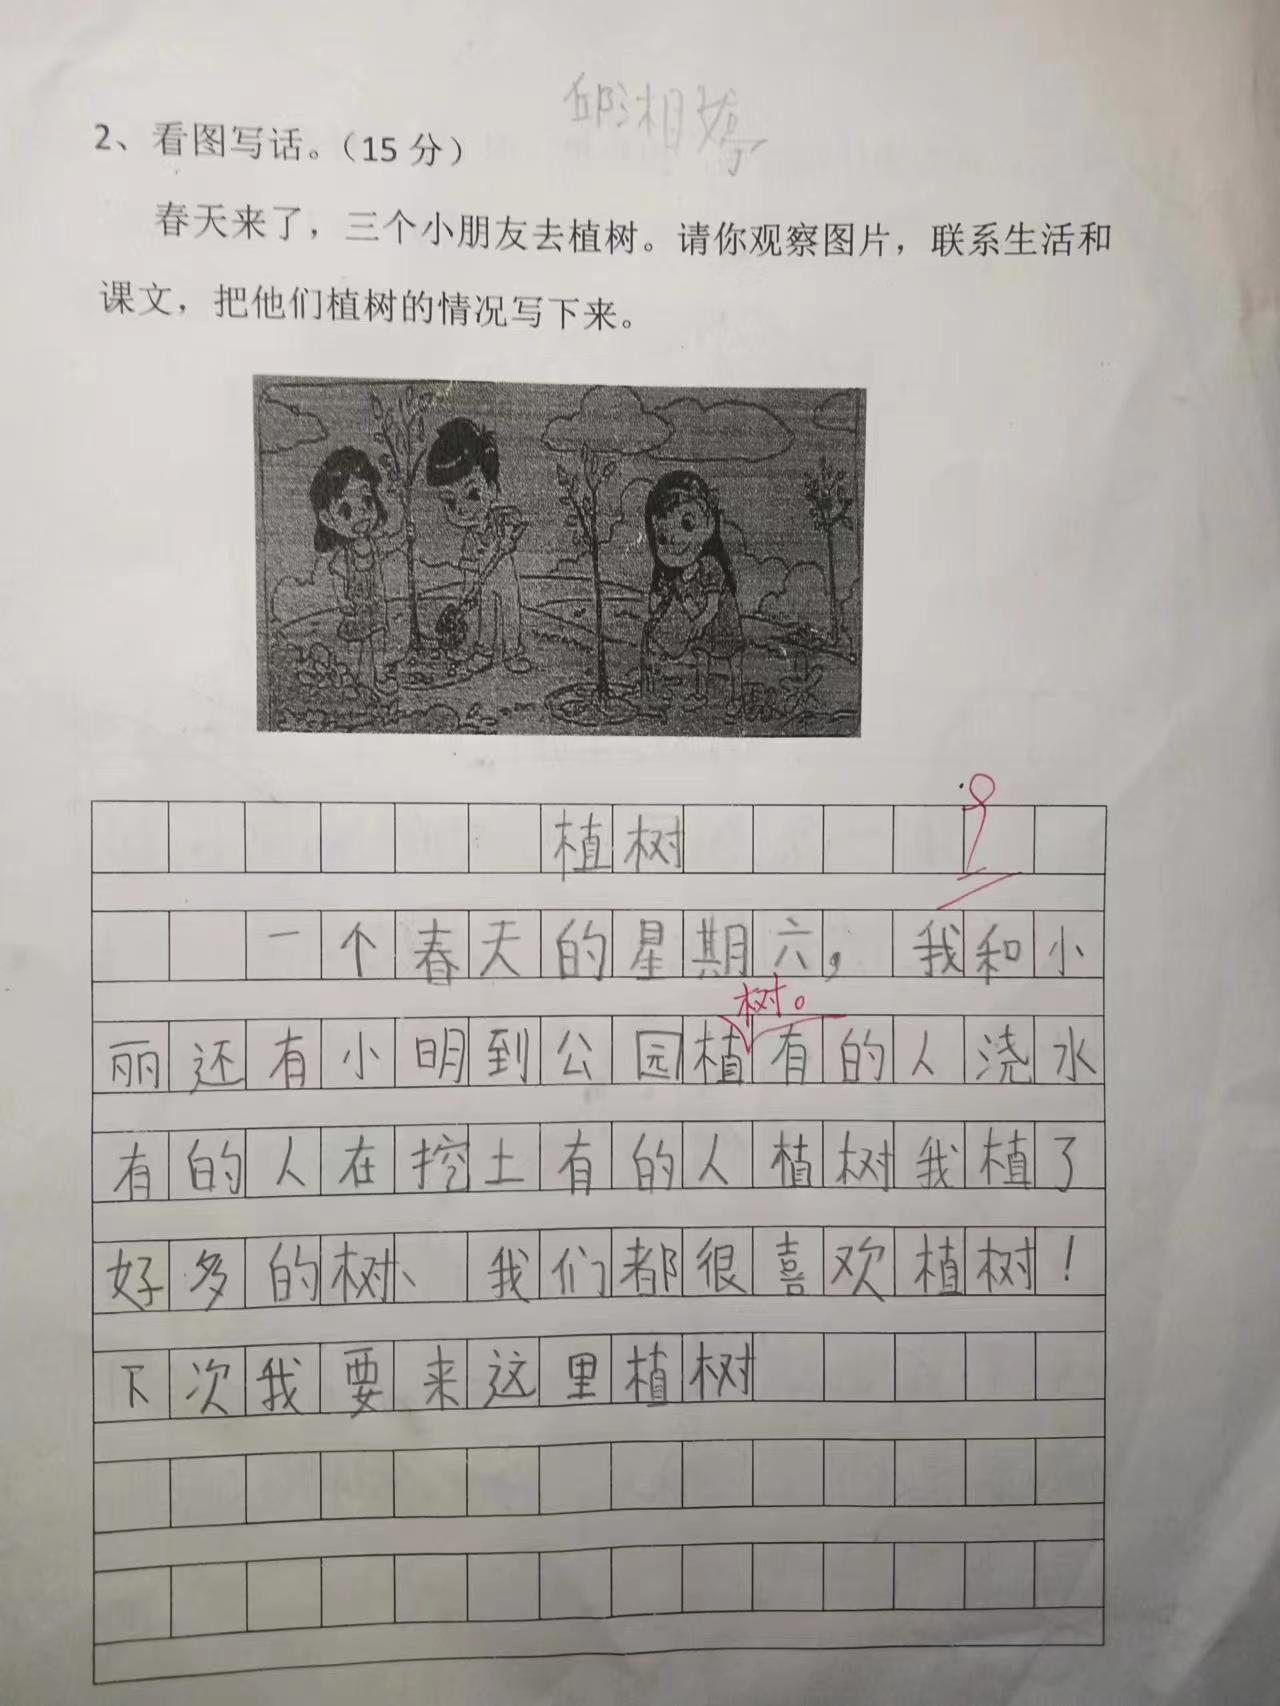 邱湘婷
2、看图写话。（15 分）
春天来了，三个小朋友去植树。请你观察图片，联系生活和
课文，把他们植树的情况写下来。
植树
9
一个春天的星期六，我和小
树。
丽还有小明到公园植有的人浇水
有的人在挖土有的人植树我植了
好多的树、我们都很喜欢植树！
下次我要来这里植树